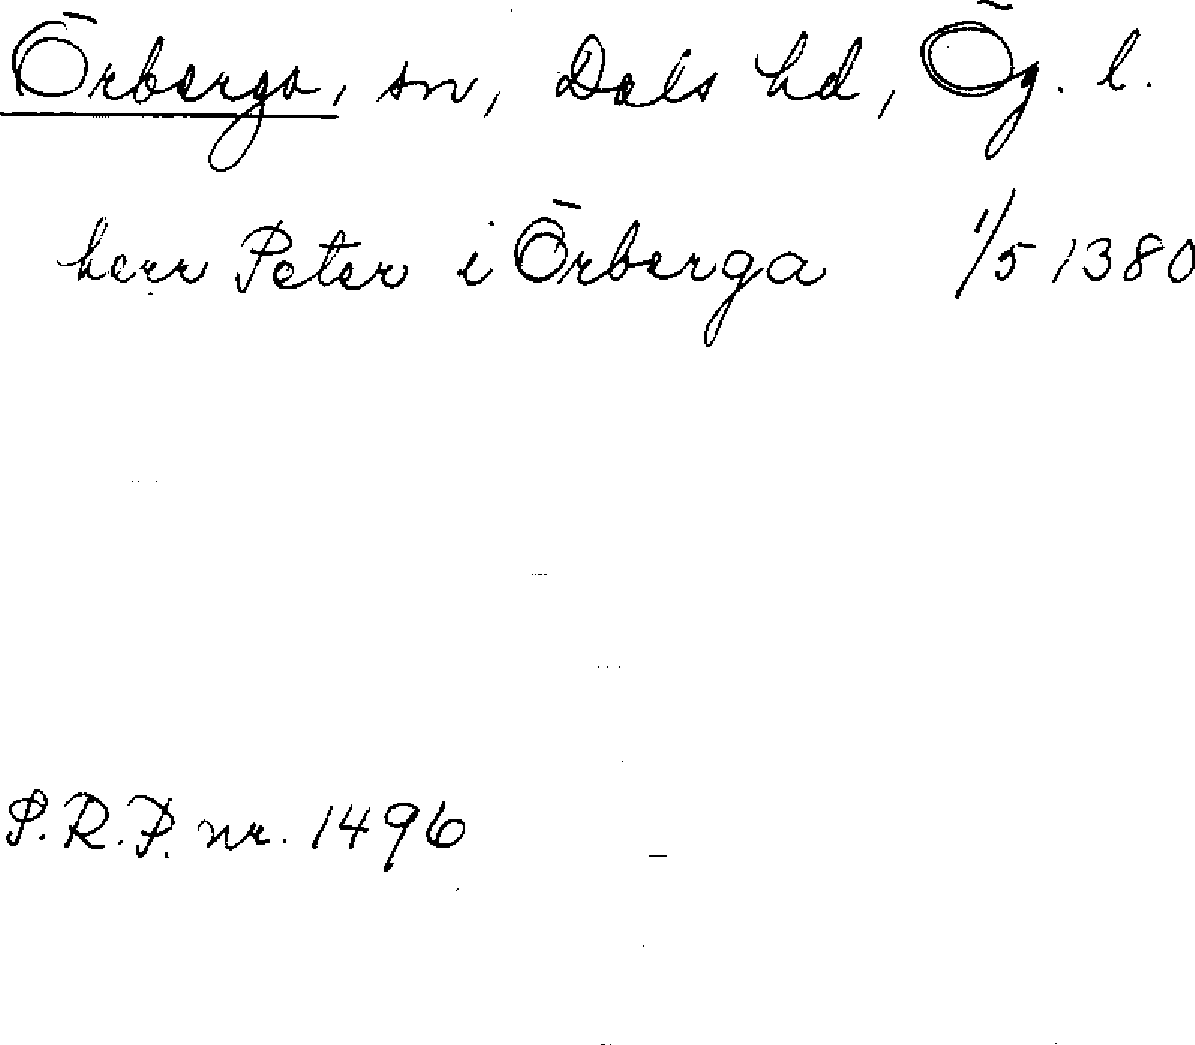 Örberga, sn, Dals hd, Ög. l.
herr Peter i Örberga 1/5 1380
S.R.P. nr. 1496